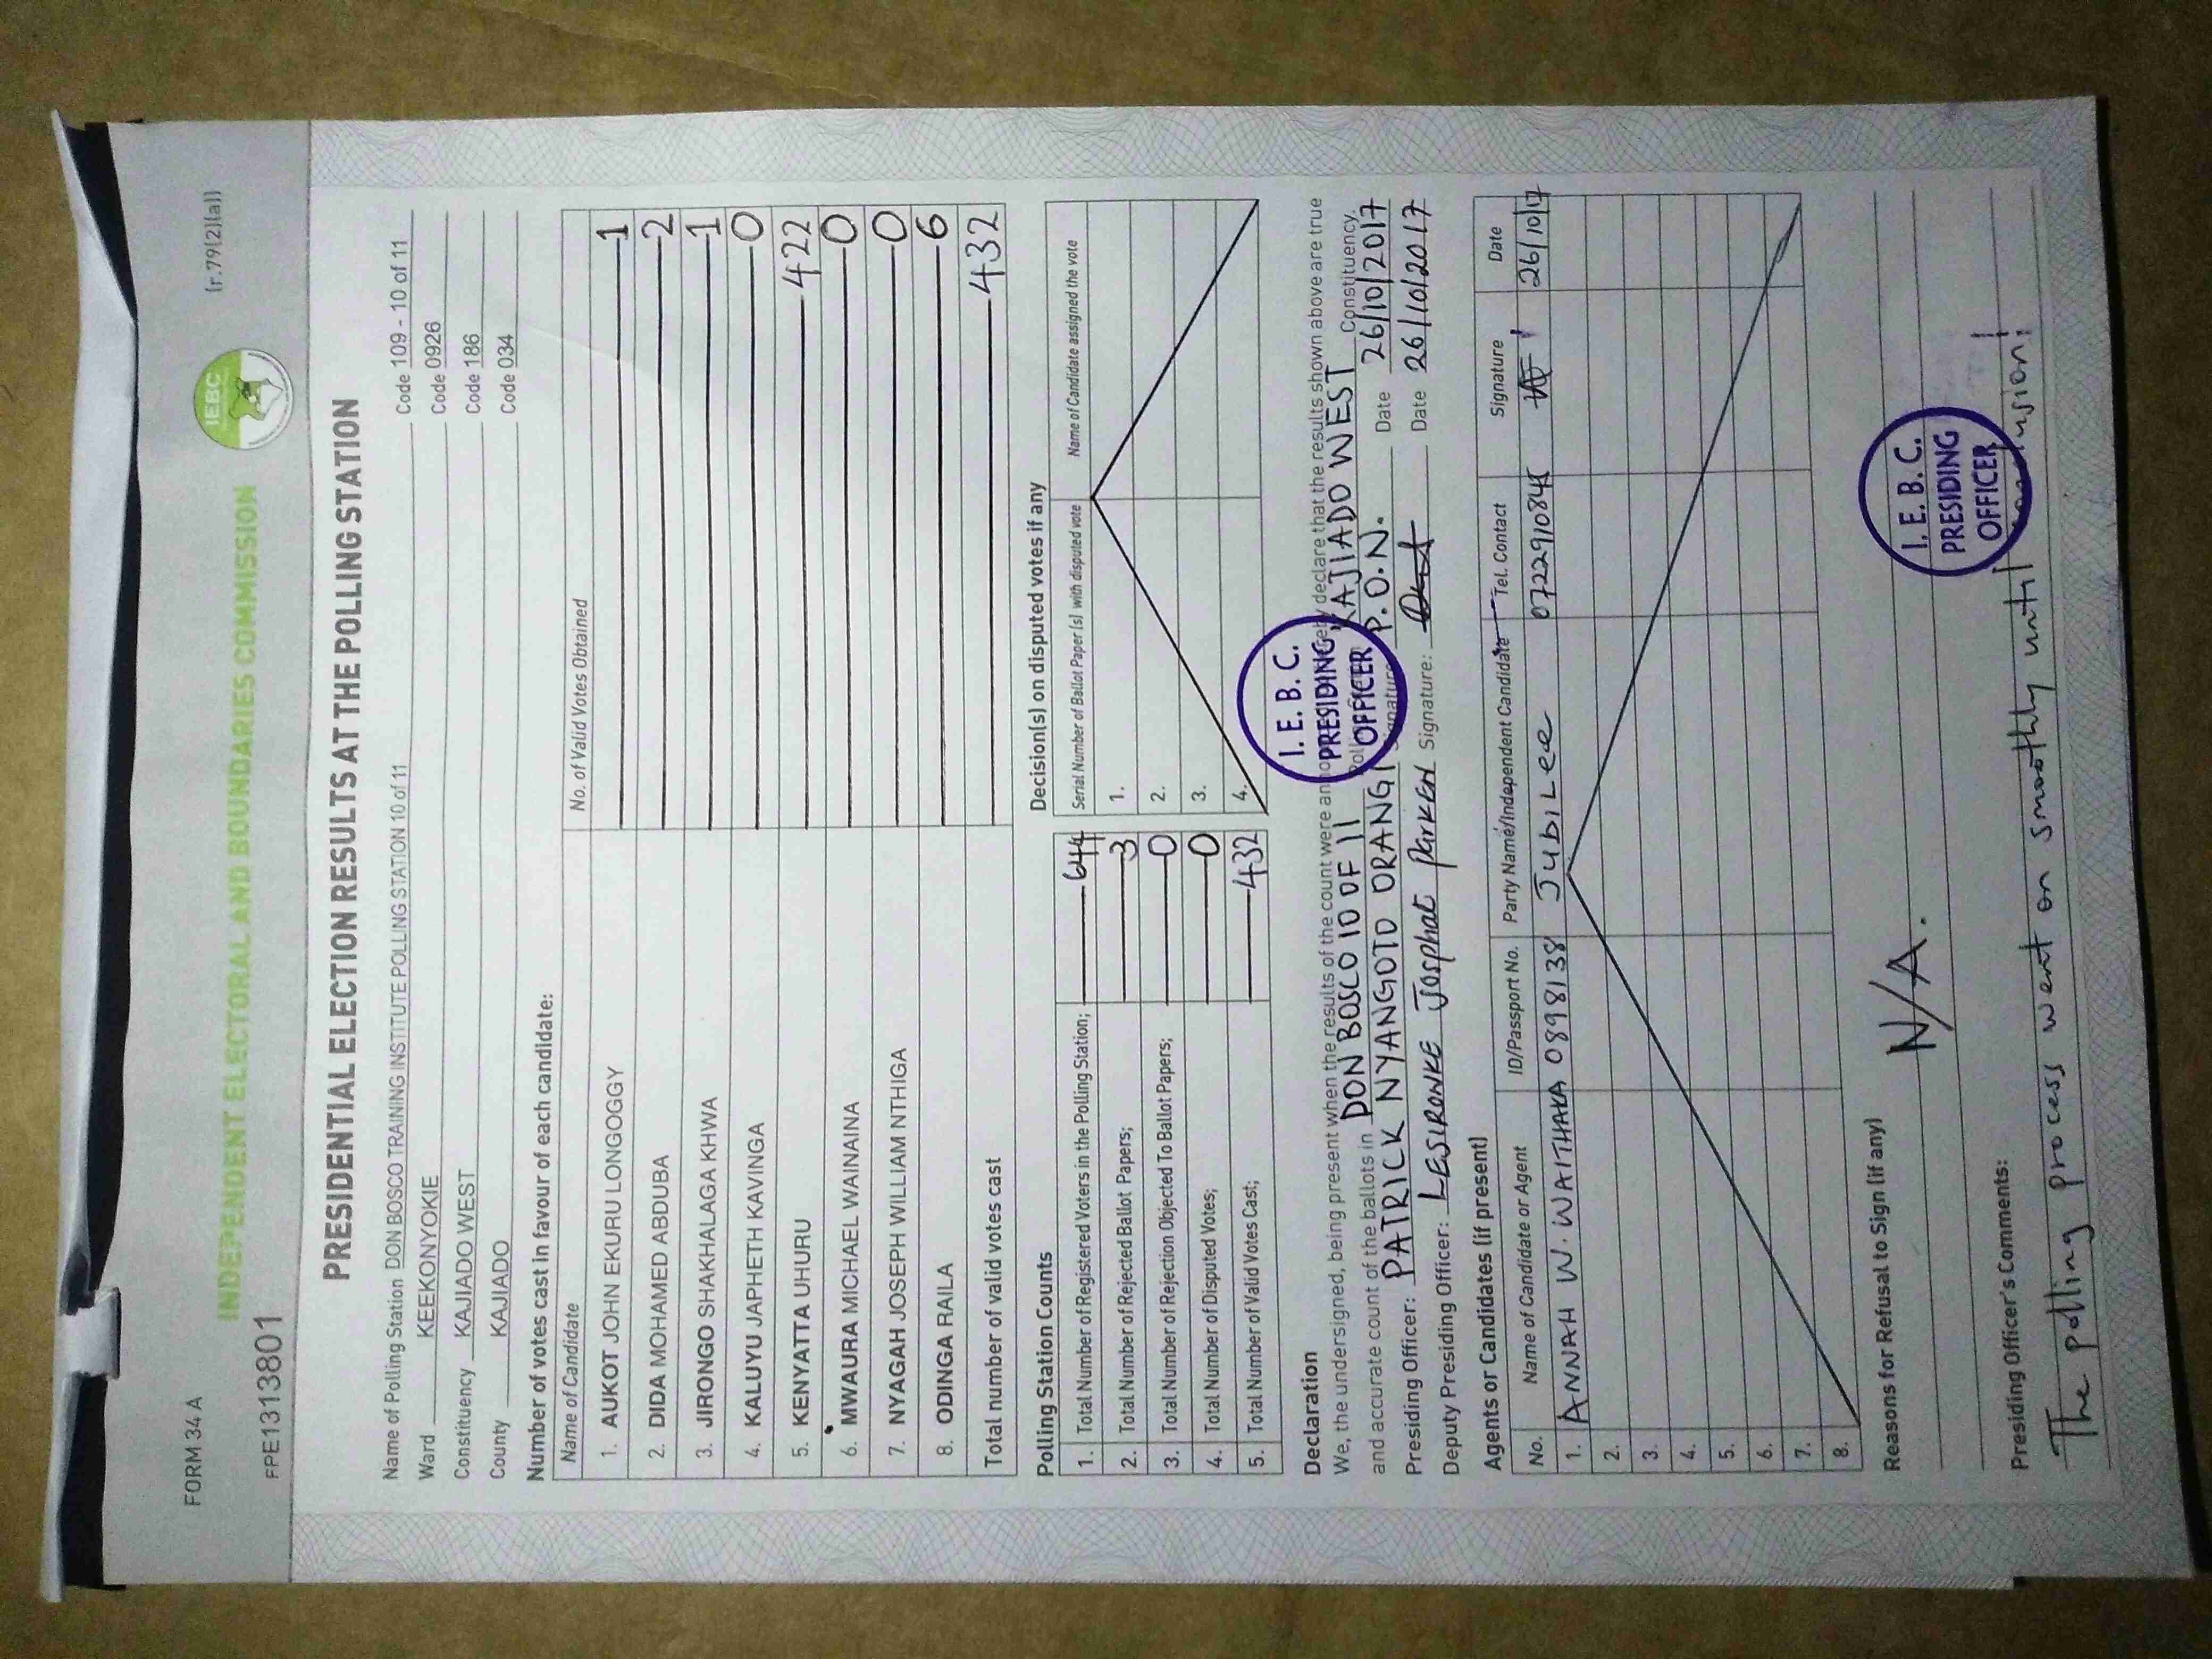 FORM 34 A
(r.79(2)(a))
INDEPENDENT ELECTORAL AND BOUNDARIES COMMISSION
IEBC
FPE1313801
PRESIDENTIAL ELECTION RESULTS AT THE POLLING STATION
Name of Polling Station DON BOSCO TRAINING INSTITUTE POLLING STATION 10 of 11 Code 109 - 10 of 11
Ward KEEKONYOKIE Code 0926
Constituency KAJIADO WEST Code 186
County KAJIADO Code 034
Number of votes cast in favour of each candidate:
Name of Candidate No. of Valid Votes Obtained
1. AUKOT JOHN EKURU LONGOGGY 1
2. DIDA MOHAMED ABDUBA 2
3. JIRONGO SHAKHALAGA KHWA 1
4. KALUYU JAPHETH KAVINGA 0
5. KENYATTA UHURU 422
6. MWAURA MICHAEL WAINAINA 0
7. NYAGAH JOSEPH WILLIAM NTHIGA 0
8. ODINGA RAILA 6
Total number of valid votes cast 432
Polling Station Counts
1. Total Number of Registered Voters in the Polling Station; 644
2. Total Number of Rejected Ballot Papers; 3
3. Total Number of Rejection Objected To Ballot Papers; 0
4. Total Number of Disputed Votes; 0
5. Total Number of Valid Votes Cast; 432
Decision(s) on disputed votes if any
Serial Number of Ballot Paper (s) with disputed vote Name of Candidate assigned the vote
1.
2.
3.
4.
Declaration
We, the undersigned, being present when the results of the count were an declare that the results shown above are true
and accurate count of the ballots in DON BOSCO 10 OF 11 KAJIADO WEST Constituency.
Presiding Officer: PATRICK NYANGOTO ORANGI P.O.N. Date 26/10/2017
Deputy Presiding Officer: LESIRONKE Josphat Parken Signature: Date 26/10/2017
I. E. B. C.
PRESIDING
OFFICER
Agents or Candidates (if present)
No. Name of Candidate or Agent ID/Passport No. Party Name/Independent Candidate Tel. Contact Signature Date
1. ANNAH W. WAITHAKA 0898138 JUBILee 26/10/17
2.
3.
4.
5.
6.
7.
8.
Reasons for Refusal to Sign (if any)
N/A.
I. E. B. C.
PRESIDING
OFFICER
Presiding Officer's Comments:
The polling process went on smoothly until